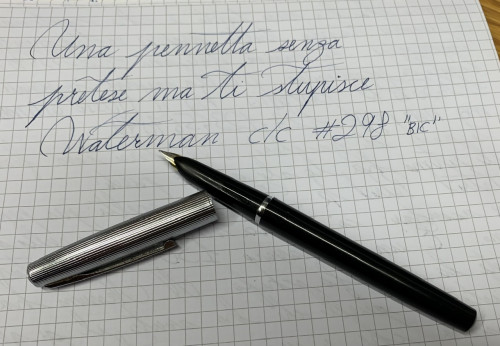 Una pennetta senza
pretese ma ti stupisce
Waterman c/c #298 "BIC"